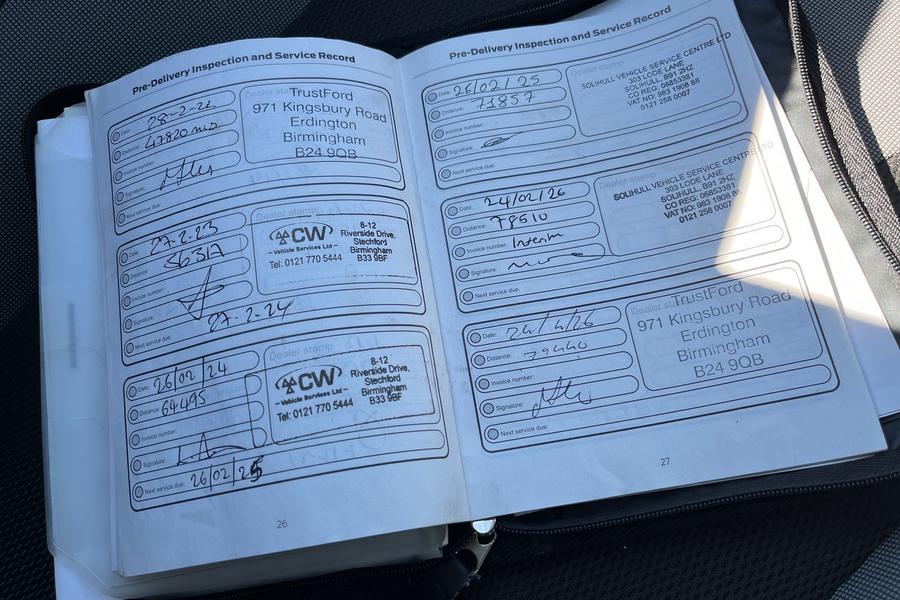 Pre-Delivery Inspection and Service Record
Date: 28-2-22
Distance: 47820 mls
Invoice number:
Signature:
Next service due:
Dealer stamp
TrustFord
971 Kingsbury Road
Erdington
Birmingham
B24 9QB
Date: 27.2.23
Distance:
Invoice number:
Signature:
Next service due: 27-2-24
Dealer stamp
CW
Vehicle Services Ltd
Tel: 0121 770 5444
8-12
Riverside Drive,
Stechford
Birmingham
B33 9BF
Date: 26/02/24
Distance: 64495
Invoice number:
Signature:
Next service due: 26/02/25
Dealer stamp
CW
Vehicle Services Ltd
Tel: 0121 770 5444
8-12
Riverside Drive,
Stechford
Birmingham
B33 9BF
26
Pre-Delivery Inspection and Service Record
Date: 26/02/25
Distance: 71857
Invoice number:
Signature:
Next service due:
Dealer stamp
SOLIHULL VEHICLE SERVICE CENTRE LTD
303 LODE LANE
SOLIHULL, B91 2HZ
CO REG: 06853381
VAT NO: 983 1908 85
0121 258 0007
Date: 24/02/26
Distance: 78510
Invoice number: Interim
Signature:
Next service due:
Dealer stamp
SOLIHULL VEHICLE SERVICE CENTRE LTD
303 LODE LANE
SOLIHULL, B91 2HZ
CO REG: 06853381
VAT NO: 983 1908 85
0121 258 0007
Date: 24/4/26
Distance: 79440
Invoice number:
Signature:
Next service due:
Dealer stamp
TrustFord
971 Kingsbury Road
Erdington
Birmingham
B24 9QB
27